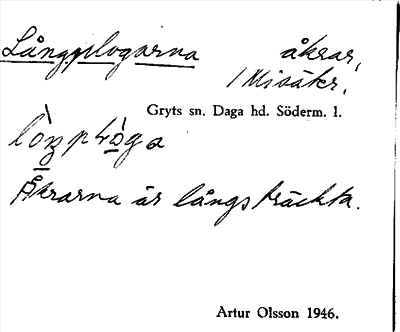 Långplogarna åkrar,
i Misäker.
Gryts sn. Daga hd. Söderm. l.
Åkrarna är långsträckta.
Artur Olsson 1946.